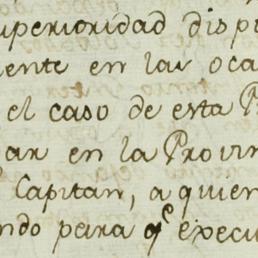 uperioridad disp
ente en las oca
el caso de esta P
ar en la Provin
Capitan, a quien
ndo para q.e execu